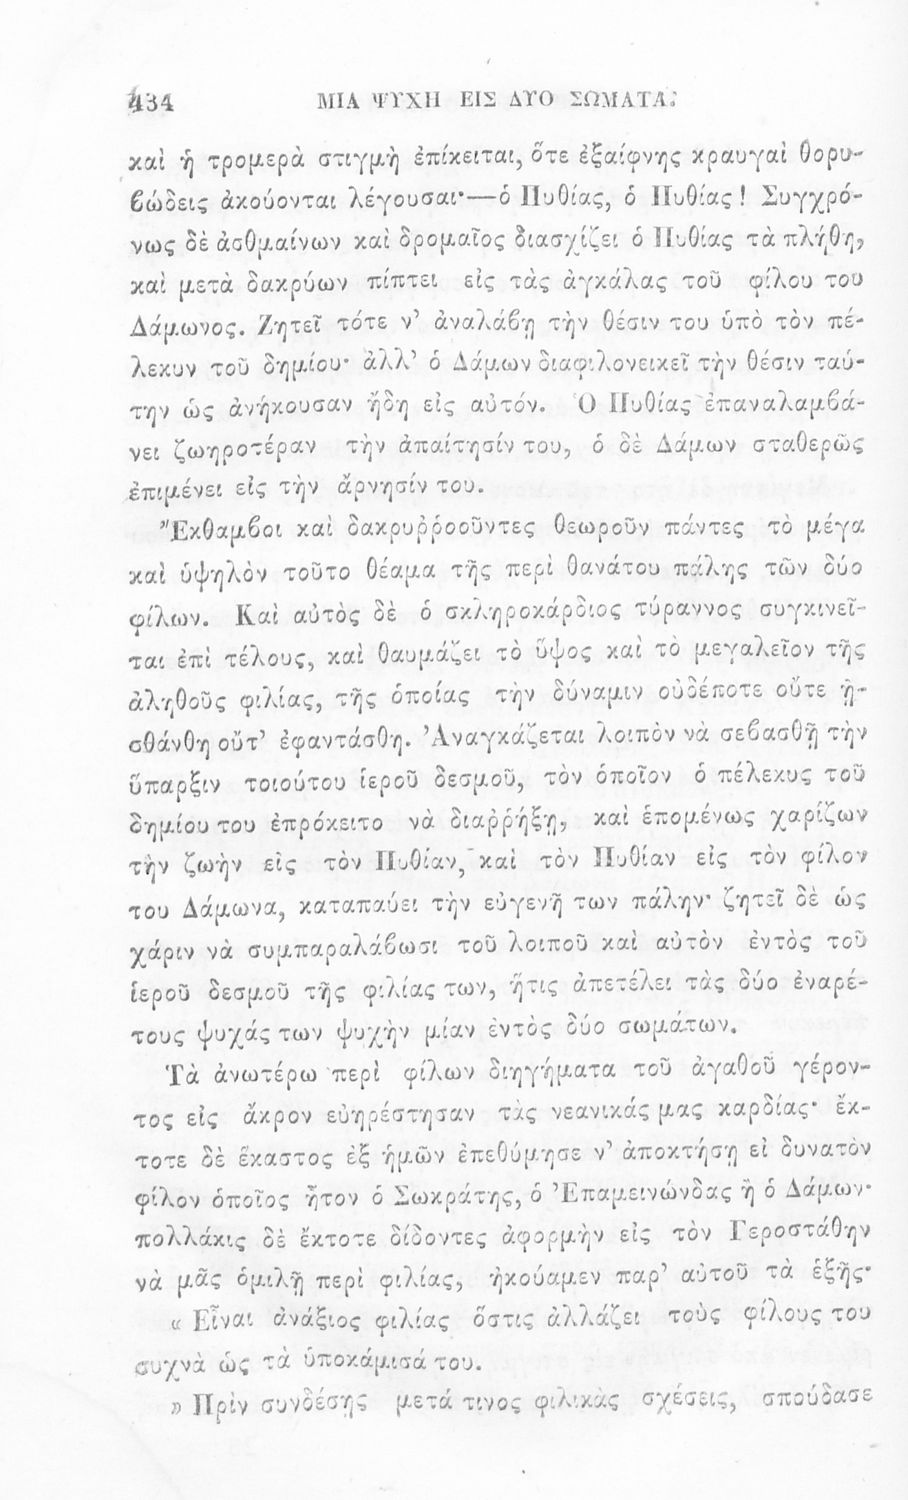 434 ΜΙΑ ΨΥΧΗ ΕΙΣ ΔΥΟ ΣΩΜΑΤΑ.
καὶ ἡ τρομερὰ στιγμὴ ἐπίκειται, ὅτε ἐξαίφνης κραυγαὶ θορυ-
βώδεις ἀκούονται λέγουσαι·—ὁ Πυθίας, ὁ Πυθίας! Συγχρό-
νως δὲ ἀσθμαίνων καὶ δρομαῖος διασχίζει ὁ Πυθίας τὰ πλήθη,
καὶ μετὰ δακρύων πίπτει εἰς τὰς ἀγκάλας τοῦ φίλου του
Δάμωνος. Ζητεῖ τότε ν’ ἀναλάβῃ τὴν θέσιν του ὑπὸ τὸν πέ-
λεκυν τοῦ δημίου· ἀλλ’ ὁ Δάμων διαφιλονεικεῖ τὴν θέσιν ταύ-
την ὡς ἀνήκουσαν ἤδη εἰς αὐτόν. Ὁ Πυθίας ἐπαναλαμβά-
νει ζωηροτέραν τὴν ἀπαίτησίν του, ὁ δὲ Δάμων σταθερῶς
ἐπιμένει εἰς τὴν ἄρνησίν του.
Ἔκθαμβοι καὶ δακρυῤῥοοῦντες θεωροῦν πάντες τὸ μέγα
καὶ ὑψηλὸν τοῦτο θέαμα τῆς περὶ θανάτου πάλης τῶν δύο
φίλων. Καὶ αὐτὸς δὲ ὁ σκληροκάρδιος τύραννος συγκινεῖ-
ται ἐπὶ τέλους, καὶ θαυμάζει τὸ ὕψος καὶ τὸ μεγαλεῖον τῆς
ἀληθοῦς φιλίας, τῆς ὁποίας τὴν δύναμιν οὐδέποτε οὔτε ᾐ-
σθάνθη οὔτ’ ἐφαντάσθη. Ἀναγκάζεται λοιπὸν νὰ σεβασθῇ τὴν
ὕπαρξιν τοιούτου ἱεροῦ δεσμοῦ, τὸν ὁποῖον ὁ πέλεκυς τοῦ
δημίου του ἐπρόκειτο νὰ διαῤῥήξῃ, καὶ ἑπομένως χαρίζων
τὴν ζωὴν εἰς τὸν Πυθίαν, καὶ τὸν Πυθίαν εἰς τὸν φίλον
του Δάμωνα, καταπαύει τὴν εὐγενῆ των πάλην· ζητεῖ δὲ ὡς
χάριν νὰ συμπαραλάβωσι τοῦ λοιποῦ καὶ αὐτὸν ἐντὸς τοῦ
ἱεροῦ δεσμοῦ τῆς φιλίας των, ἥτις ἀπετέλει τὰς δύο ἐναρέ-
τους ψυχάς των ψυχὴν μίαν ἐντὸς δύο σωμάτων.
Τὰ ἀνωτέρω περὶ φίλων διηγήματα τοῦ ἀγαθοῦ γέρον-
τος εἰς ἄκρον εὐηρέστησαν τὰς νεανικάς μας καρδίας· ἔκ-
τοτε δὲ ἕκαστος ἐξ ἡμῶν ἐπεθύμησε ν’ ἀποκτήσῃ εἰ δυνατὸν
φίλον ὁποῖος ἦτον ὁ Σωκράτης, ὁ Ἐπαμεινώνδας ἢ ὁ Δάμων·
πολλάκις δὲ ἔκτοτε δίδοντες ἀφορμὴν εἰς τὸν Γεροστάθην
νὰ μᾶς ὁμιλῇ περὶ φιλίας, ἠκούαμεν παρ’ αὐτοῦ τὰ ἑξῆς·
« Εἶναι ἀνάξιος φιλίας ὅστις ἀλλάζει τοὺς φίλους του
συχνὰ ὡς τὰ ὑποκάμισά του.
» Πρὶν συνδέσῃς μετά τινος φιλικὰς σχέσεις, σπούδασε